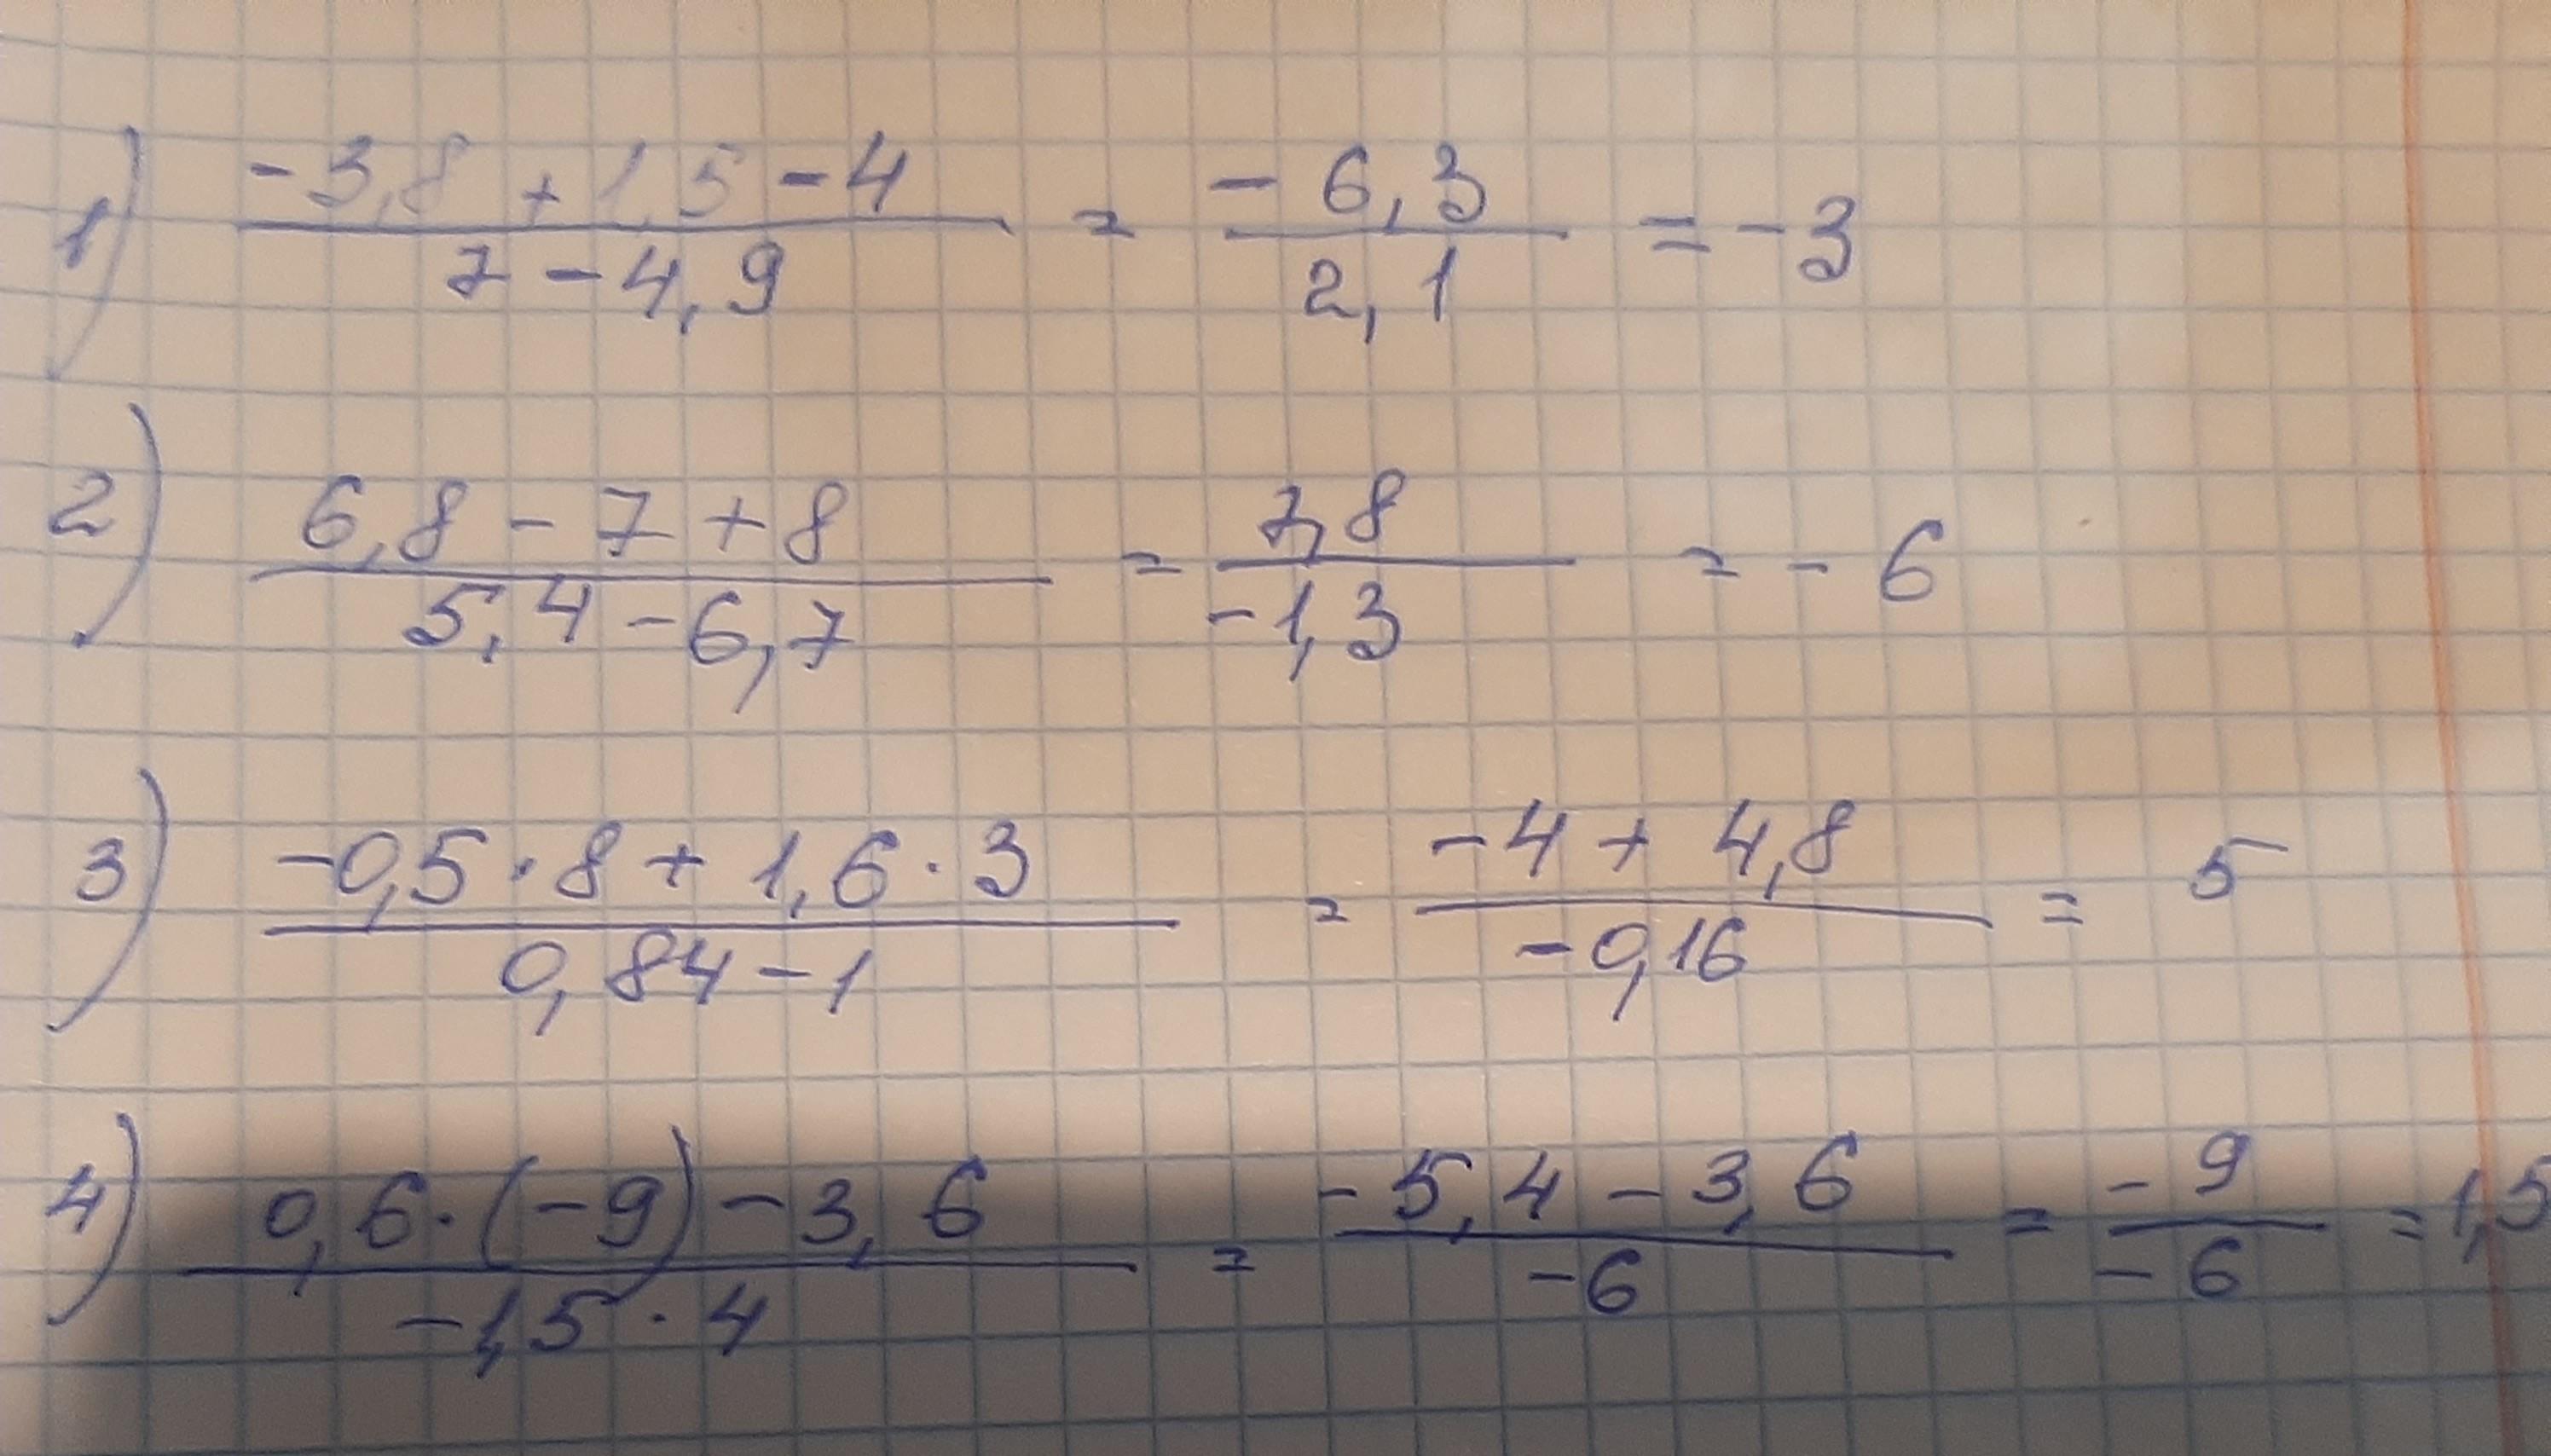 1) (-3,8 + 1,5 - 4)/(7 - 4,9) = (-6,3)/(2,1) = -3
2) (6,8 - 7 + 8)/(5,4 - 6,7) = (7,8)/(-1,3) = -6
3) (-0,5 · 8 + 1,6 · 3)/(0,84 - 1) = (-4 + 4,8)/(-0,16) = 5
4) (0,6 · (-9) - 3,6)/(-1,5 · 4) = (-5,4 - 3,6)/(-6) = (-9)/(-6) = 1,5